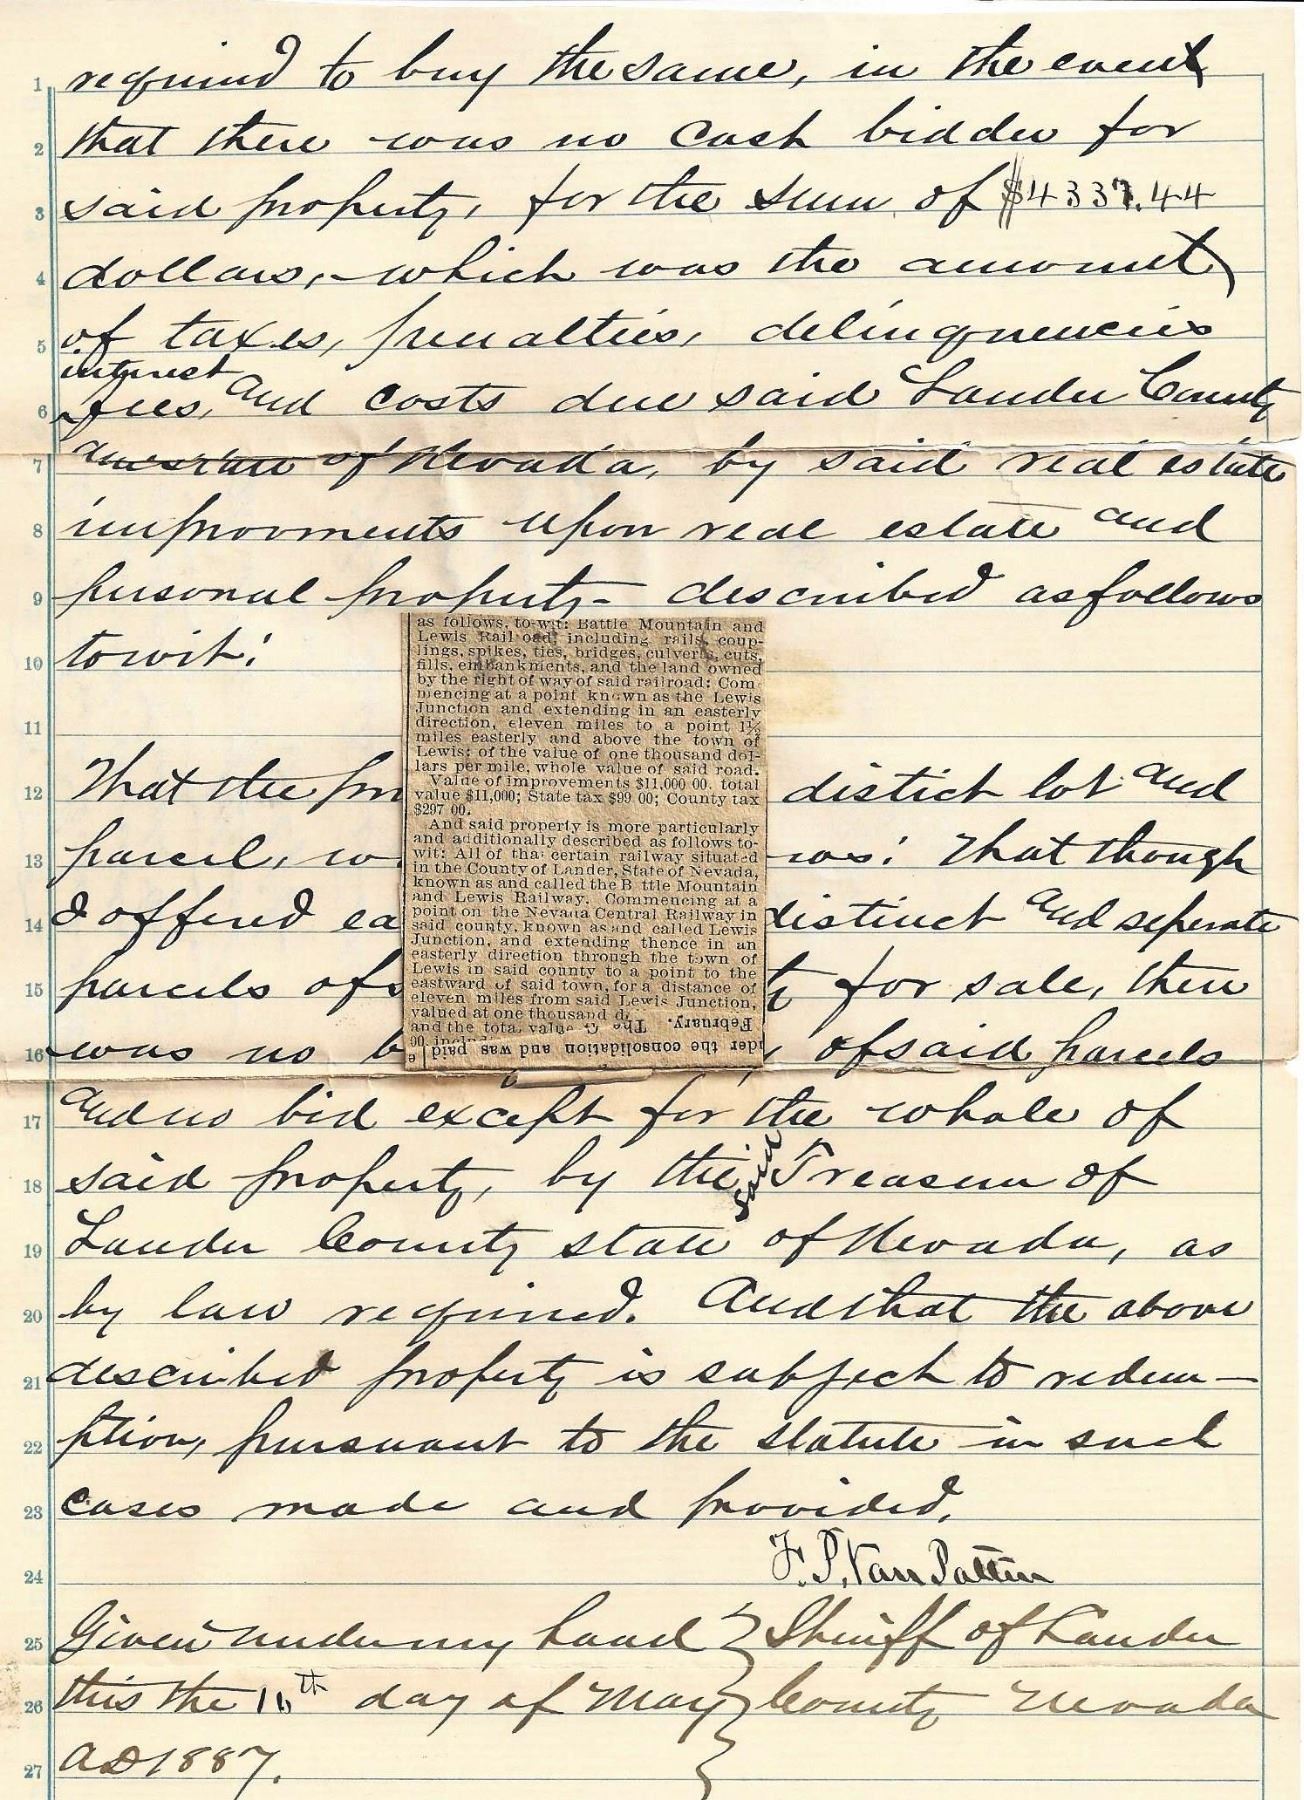 1 required to buy the same, in the event
2 that there was no cash bidder for
3 said property, for the sum of $4337.44
4 dollars, which was the amount
5 of taxes, penalties, delinquencies
interest
6 fees, and costs due said Lander County
7 of Nevada, by said real estate
8 improvments upon real estate and
9 personal property - described as follows
10 towit:
as follows, to-wit: Battle Mountain and
Lewis Rail oad; including rails, coup-
lings, spikes, ties, bridges, culverts, cuts,
fills, embankments, and the land owned
by the right of way of said railroad: Com
mencing at a point known as the Lewis
Junction and extending in an easterly
direction, eleven miles to a point 1½
miles easterly and above the town of
Lewis; of the value of one thousand dol-
lars per mile, whole value of said road.
Value of improvements $11,000 00. total
value $11,000; State tax $99 00; County tax
$297 00.
And said property is more particularly
and additionally described as follows to-
wit: All of tha certain railway situated
in the County of Lander, State of Nevada,
known as and called the B ttle Mountain
and Lewis Railway. Commencing at a
point on the Nevada Central Railway in
said county, known as and called Lewis
Junction, and extending thence in an
easterly direction through the town of
Lewis in said county to a point to the
eastward of said town, for a distance of
eleven miles from said Lewis Junction,
valued at one thousand d
and the total value
February. The
der the consolidation and was paid
11
12 That the pr distict lot and
13 parcel, w was: That though
14 I offered ea distinct and seperate
15 parcels of s ty for sale, there
16 was no b of said parcels
17 and no bid except for the whole of
18 said property, by the said Treasurer of
19 Lander County state of Nevada, as
20 by law required. And that the above
21 described property is subject to redem-
22 ption, pursuant to the statute in such
23 cases made and provided.
24 F. P. Van Patten
25 Given under my hand } Sheriff of Lander
26 this the 16th day of May } County Nevada
27 AD 1887. }